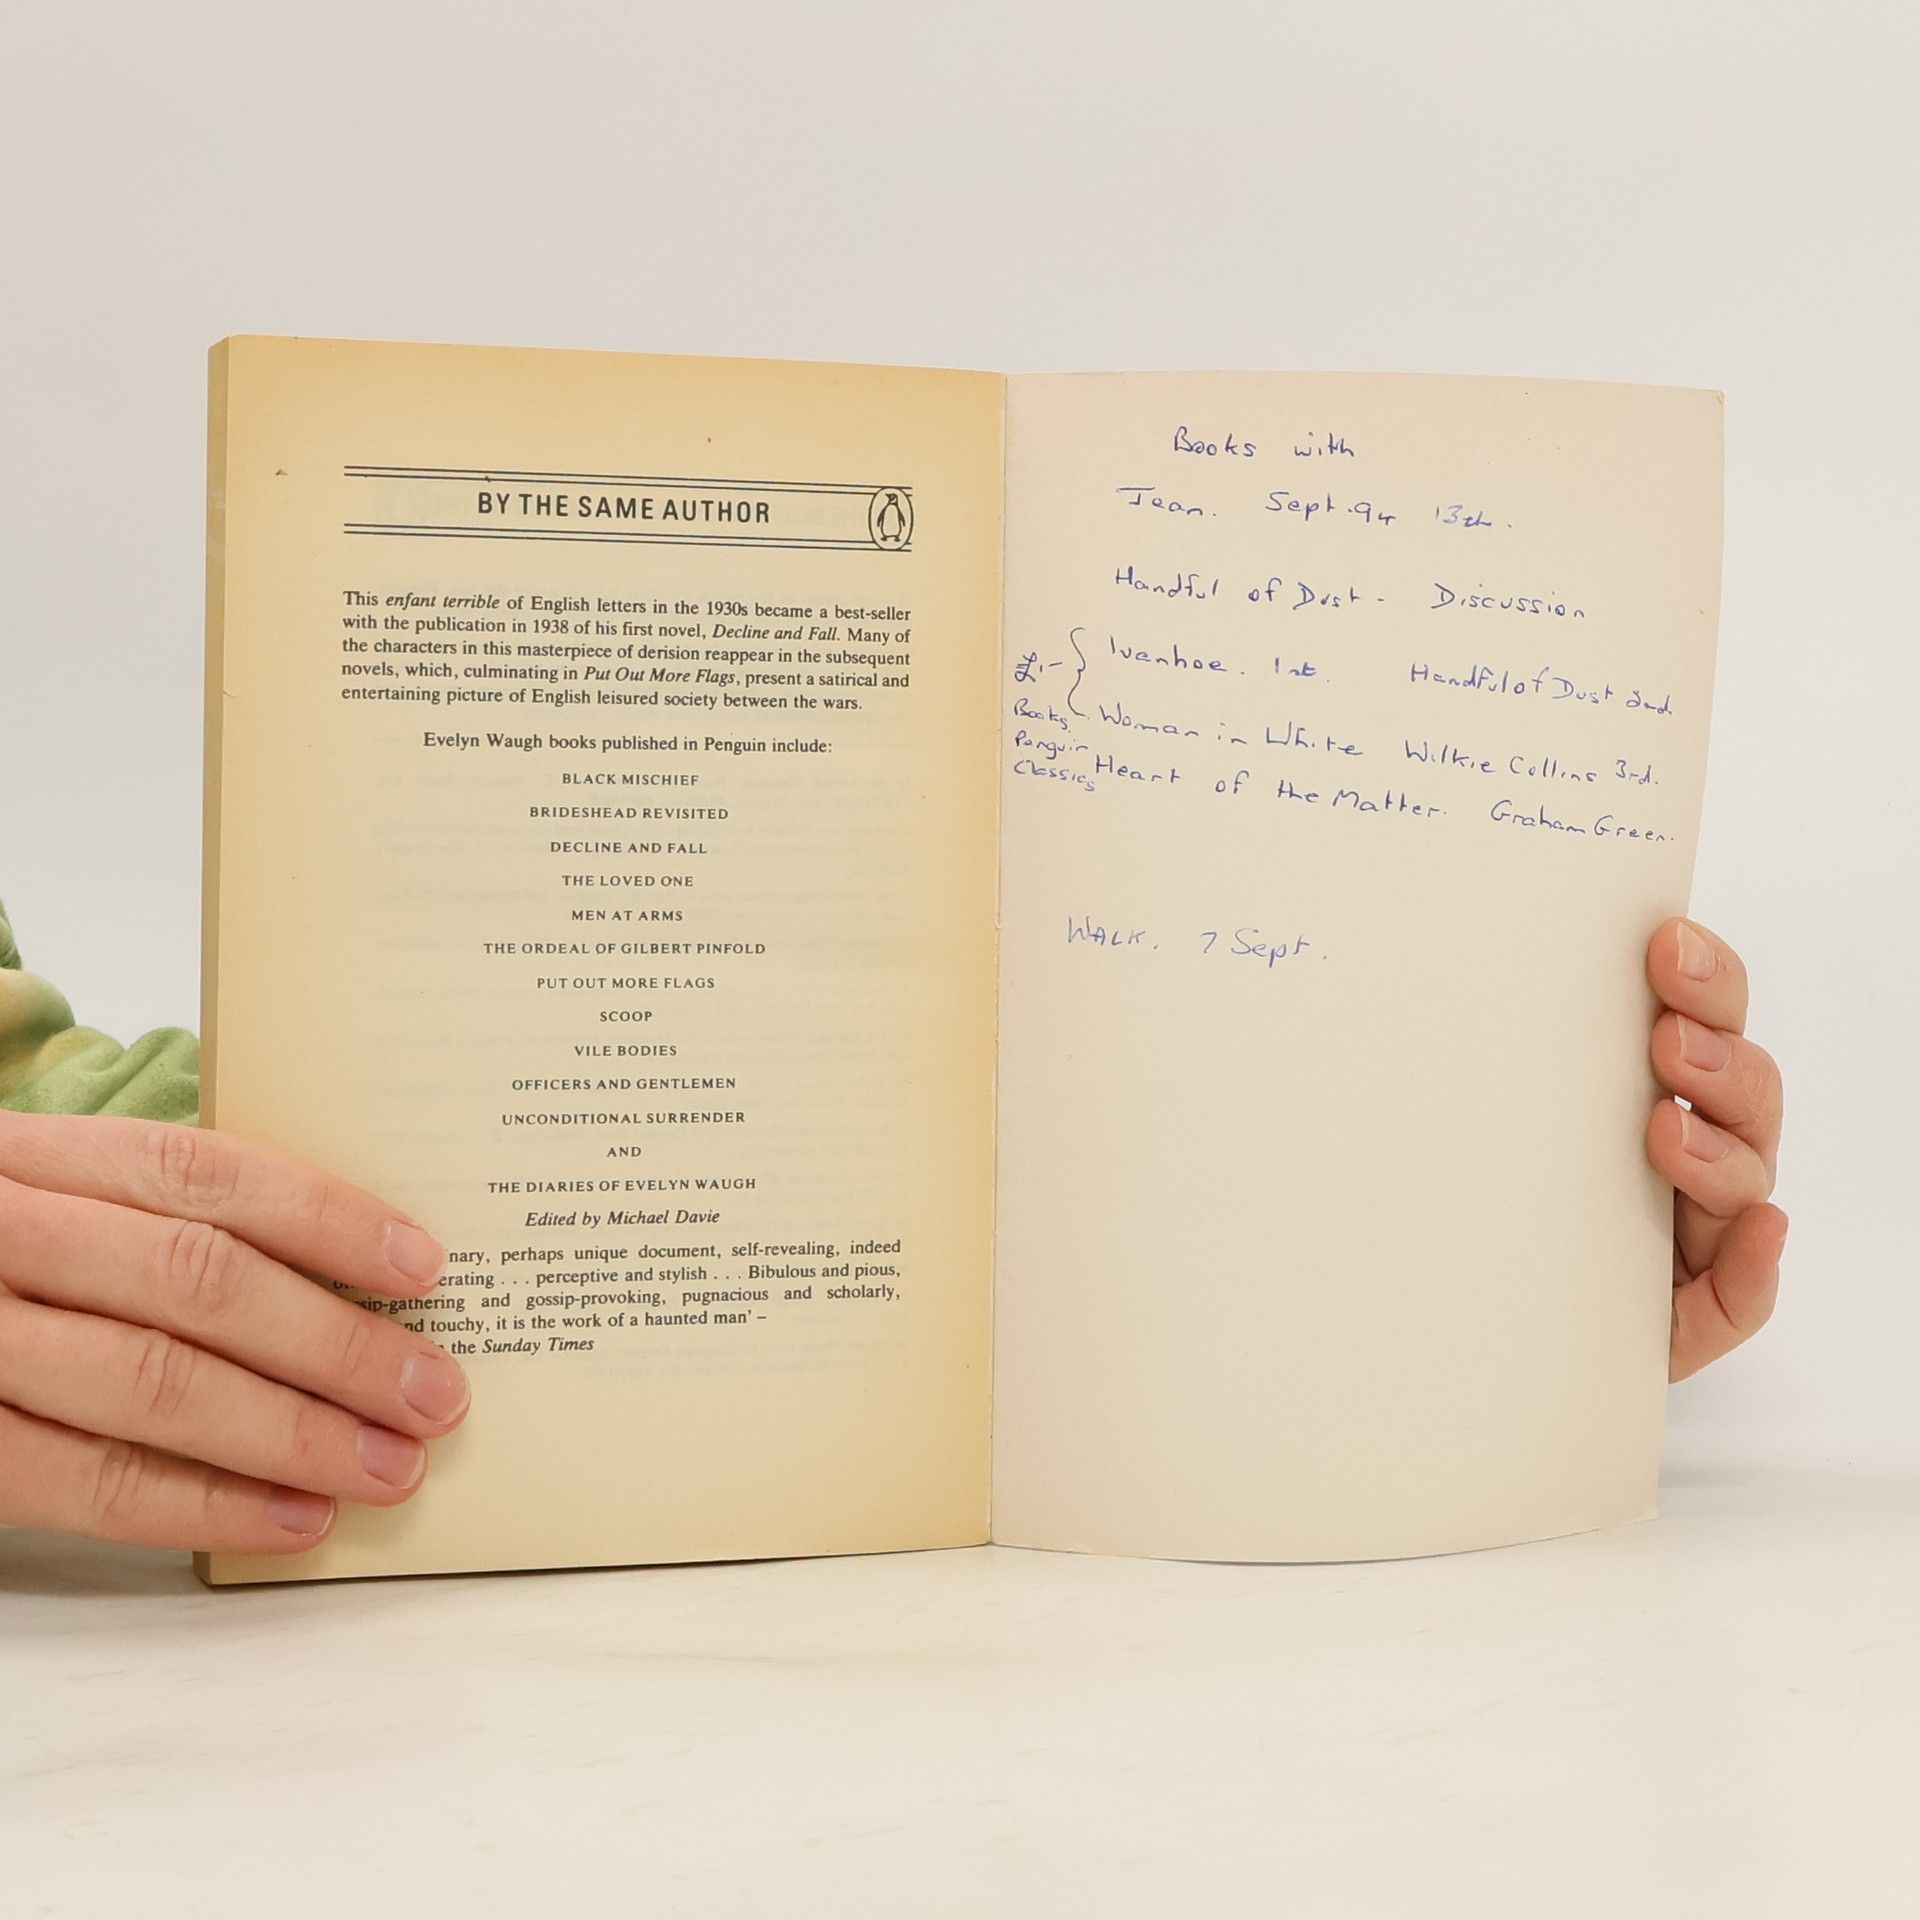 BY THE SAME AUTHOR
This enfant terrible of English letters in the 1930s became a best-seller
with the publication in 1938 of his first novel, Decline and Fall. Many of
the characters in this masterpiece of derision reappear in the subsequent
novels, which, culminating in Put Out More Flags, present a satirical and
entertaining picture of English leisured society between the wars.
Evelyn Waugh books published in Penguin include:
BLACK MISCHIEF
BRIDESHEAD REVISITED
DECLINE AND FALL
THE LOVED ONE
MEN AT ARMS
THE ORDEAL OF GILBERT PINFOLD
PUT OUT MORE FLAGS
SCOOP
VILE BODIES
OFFICERS AND GENTLEMEN
UNCONDITIONAL SURRENDER
AND
THE DIARIES OF EVELYN WAUGH
Edited by Michael Davie
nary, perhaps unique document, self-revealing, indeed
erating . . . perceptive and stylish . . . Bibulous and pious,
sip-gathering and gossip-provoking, pugnacious and scholarly,
nd touchy, it is the work of a haunted man' –
the Sunday Times
Books with
Jean. Sept. 94 13th.
Handful of Dust - Discussion
£1- { Ivanhoe. 1st. Handful of Dust 2nd
Books. Woman in White Wilkie Collins 3rd.
Penguin
Classics Heart of the Matter. Graham Green.
WALK. 7 Sept.